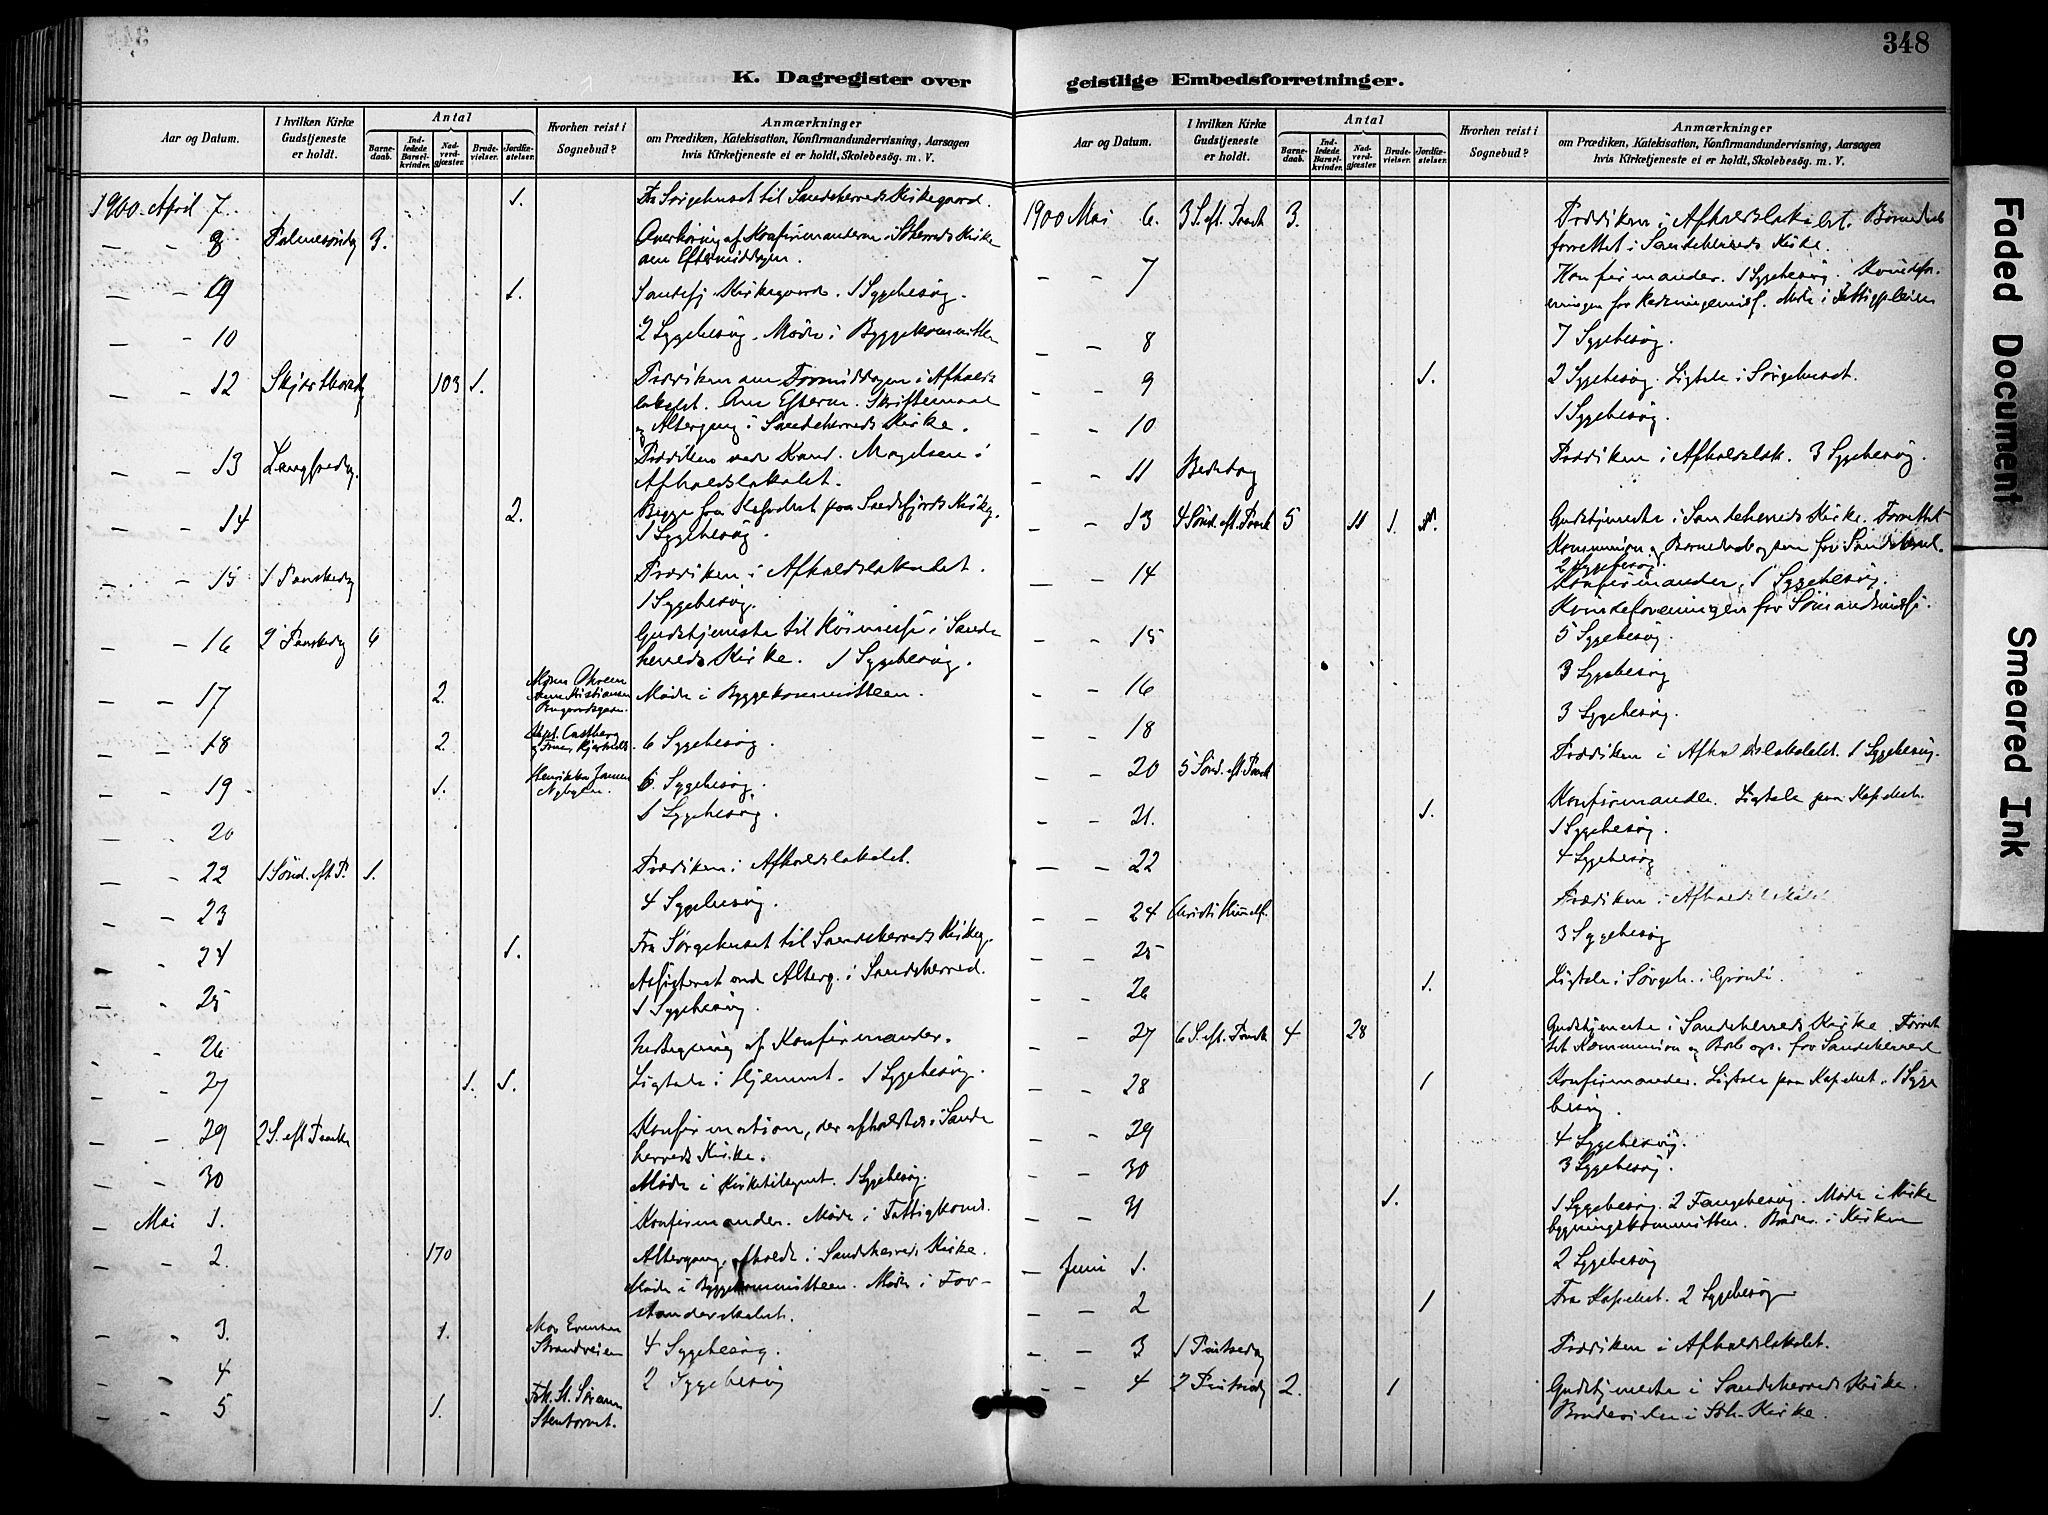 348
K. Dagregister over
geistlige Embedsforretninger.
Aar og Datum.
I hvilken Kirke
Gudstjeneste
er holdt.
Antal
Barne-
daab.
Ind-
ledede
Barsel-
kvinder.
Nad-
verd-
gjæster.
Brude-
vielser.
Jordfæ-
stelser.
Hvorhen reist i
Sognebud?
Anmærkninger
om Prædiken, Katekisation, Konfirmandundervisning, Aarsagen
hvis Kirketjeneste ei er holdt, Skolebesög. m. V.
1900 April 7. 1. Fra Sørgehuset til Sandeherreds Kirkegaard.
— — 8 Palmesøndg 3. Overhøring af Konfirmanderne i Sdherreds Kirke
om Eftermiddagen.
— — 9 1. Sandefj Kirkegaard. 1 Sygebesøg.
— — 10 2 Sygebesøg. Møde i Byggekommitten
— — 12 Skjærthorsdg 103 1. Prædiken om Formiddagen i Afholds
lokalet. Om Efterm. Skriftemaal
og Altergang i Sandeherreds Kirke.
— — 13 Langfredg. Prædiken ved Kand. Magelsen i
Afholdslokalet.
— — 14 2. Begge fra Kapellet paa Sandefjords Kirkeg.
1 Sygebesøg.
— — 15 1 Paaskedg Prædiken i Afholdslokalet.
1 Sygebesøg.
— — 16 2 Paaskedg 4 Gudstjeneste til Høimesse i Sande
herreds Kirke. 1 Sygebesøg.
— — 17 2. Møde i Byggekommitteen.
— — 18 2 6 Sygebesøg.
— — 19 1. 6. Sygebesøg.
— — 20 1 Sygebesøg.
— — 22 1 Sønd. eft. P. 1. Prædiken i Afholdslokalet.
— — 23 4 Sygebesøg.
— — 24 1. Fra Sørgehuset til Sandeherreds Kirkeg.
— — 25 Assisteret ved Alterg. i Sandeherred.
1 Sygebesøg.
— — 26 af Konfirmander.
— — 27 1. 1. Ligtale i Hjemmet. 1 Sygebesøg.
— — 29 2 S. eft Paaske Konfirmation, der afholdtes i Sande
herreds Kirke.
— — 30 Møde i Kirketilsynet. 1 Sygebesøg.
— Mai 1. Konfirmander. Møde i Fattigkomd.
— — 2. 170 Altergang afholdt i Sandeherreds Kirke.
Møde i Byggekommitteen. Møde i For-
standerskabet.
— — 3. 1. Strandveien 4 Sygebesøg.
— — 4 2 Sygebesøg
— — 5 1.
1900 Mai 6. 3 S. eft. Paask 3. Prædiken i Afholdslokalet. Barnedaab
forrettet i Sandeherreds Kirke.
— — 7 Konfirmander. 1 Sygebesøg. Kvindefor-
eningen for Hedningemis. Møde i Fattigpleien
— — 8 7 Sygebesøg.
— — 9 1. 2 Sygebesøg. Ligtale i Sørgehuset.
— — 10 1 Sygebesøg.
— — 11 Bededag Prædiken i Afholdslok. 3 Sygebesøg.
— — 13 4 Sønd. eft. Paask 5 11 1. Gudstjeneste i Sandeherreds Kirke. Forrettet
Kommunion og for Sandeherred.
2 Sygebesøg.
— — 14 Konfirmander, 1 Sygebesøg.
Kvindeforeningen for Sømandsmiss.
— — 15 5 Sygebesøg.
— — 16 3 Sygebesøg
— — 18 3 Sygebesøg.
— — 20 5 Sønd. eft. Paask Prædiken i Afholdslokalet. 1 Sygebesøg.
— — 21. 1. Konfirmander. Ligtale paa Kapellet.
1 Sygebesøg.
— — 22 4 Sygebesøg
— — 24 Christi Himmelf. Prædiken i Afholdslokalet
— — 25 3 Sygebesøg
— — 26 1. Ligtale i Sørgeh. i Grønli.
— — 27 6 S. eft. Paask 4 28 Gudstjeneste i Sandeherreds Kirke Forret
tet Kommunion og for Sandeherred
— — 28 1 Konfirmander. Ligtale paa Kapellet. 1 Syge
besøg.
— — 29 4 Sygebesøg.
— — 30 3 Sygebesøg.
— — 31 1. 1 Sygebesøg. 2 Fangebesøg. Møde i Kirke
bygningskommitten. Brudev. i Kirken
— Juni 1. 2 Sygebesøg
— — 2 1 Fra Kapellet. 2 Sygebesøg
— — 3 1 Pintsedag Prædiken i Afholdslokalet.
— — 4 2 Pintsedg 2. 1 Gudstjeneste i Sandeherreds Kirke.
Brudevielse i Sdh. Kirke.
Faded Document
Smeared Ink